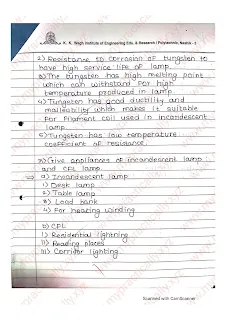 K. K. Wagh Institute of Engineering Edu. & Research (Polytechnic, Nashik - 3
2) Resistance to corrosion of tungsten to
have high service life of lamp.
3) The tungsten has high melting point
which can withstand for high
temperature produced in lamp
4) Tungsten has good ductility and
malleability which makes it suitable
for filament coil used in incandescent
lamp.
5) Tungsten has low temperature
coefficient of resistance.
3) Give appliances of incandescent lamp
and CFL lamp
⇒ a) Incandescent lamp
1) Desk lamp
2) Table lamp
3) Load bank
4) For heating winding
b) CFL
i) Residential lightning
ii) Reading places
iii) Corridor lighting.
Scanned with CamScanner